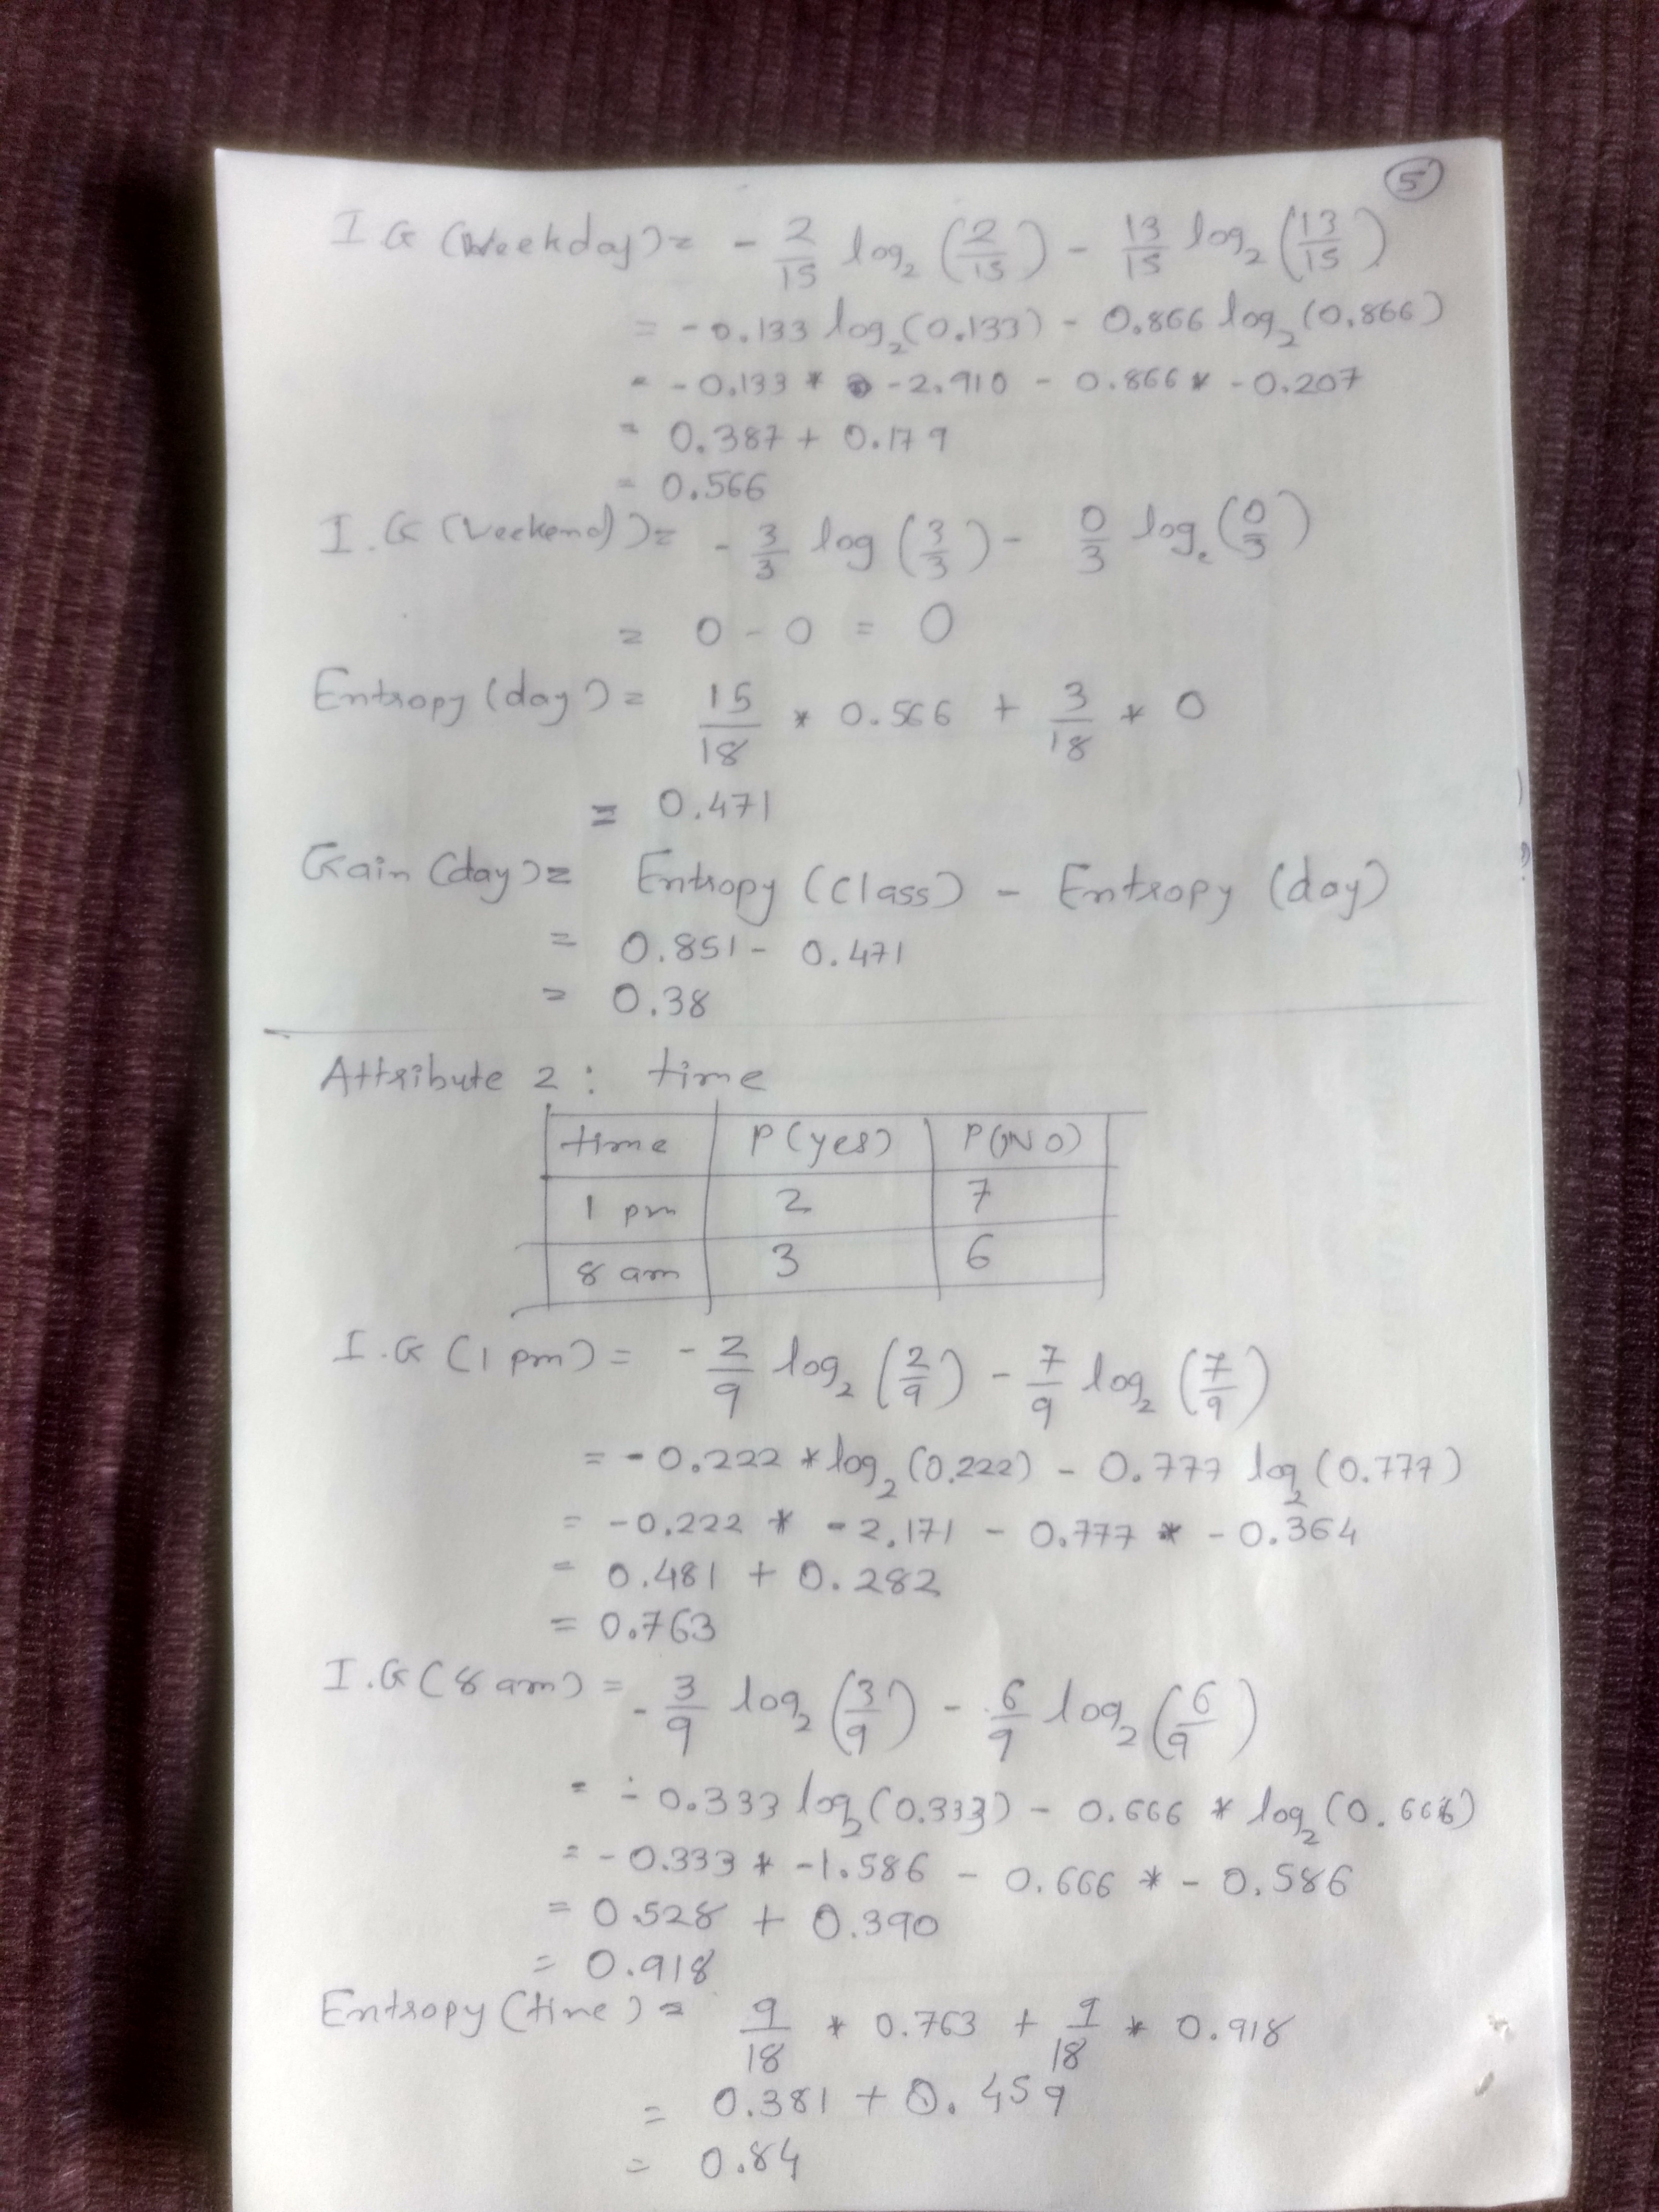 5
I G (Weekday) = - 2/15 log₂ (2/15) - 13/15 log₂ (13/15)
= -0.133 log₂(0.133) - 0.866 log₂(0.866)
= -0.133 * -2.910 - 0.866 * -0.207
= 0.387 + 0.179
= 0.566
I.G (Weekend) = - 3/3 log (3/3) - 0/3 log₂ (0/3)
= 0 - 0 = 0
Entropy (day) = 15/18 * 0.566 + 3/18 * 0
= 0.471
Gain (day) = Entropy (Class) - Entropy (day)
= 0.851 - 0.471
= 0.38
Attribute 2 : time
time P(yes) P(NO)
1 pm 2 7
8 am 3 6
I.G (1 pm) = - 2/9 log₂ (2/9) - 7/9 log₂ (7/9)
= -0.222 * log₂ (0.222) - 0.777 log₂ (0.777)
= -0.222 * -2.171 - 0.777 * -0.364
= 0.481 + 0.282
= 0.763
I.G (8 am) = - 3/9 log₂ (3/9) - 6/9 log₂ (6/9)
= -0.333 log₂(0.333) - 0.666 * log₂(0.666)
= -0.333 * -1.586 - 0.666 * -0.586
= 0.528 + 0.390
= 0.918
Entropy (time) = 9/18 * 0.763 + 9/18 * 0.918
= 0.381 + 0.459
= 0.84